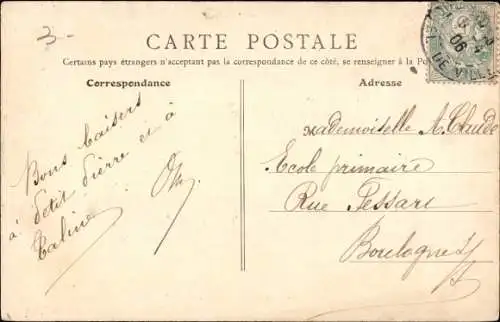 3-
CARTE POSTALE
Certains pays étrangers n'acceptant pas la correspondance de ce côté, se renseigner à la Po
Correspondance
Adresse
Bons baisers
à petit Pierre et à
Caline
Mademoiselle A. Claude
Ecole primaire
Rue Fessart
Boulogne s/
06
DE VILL